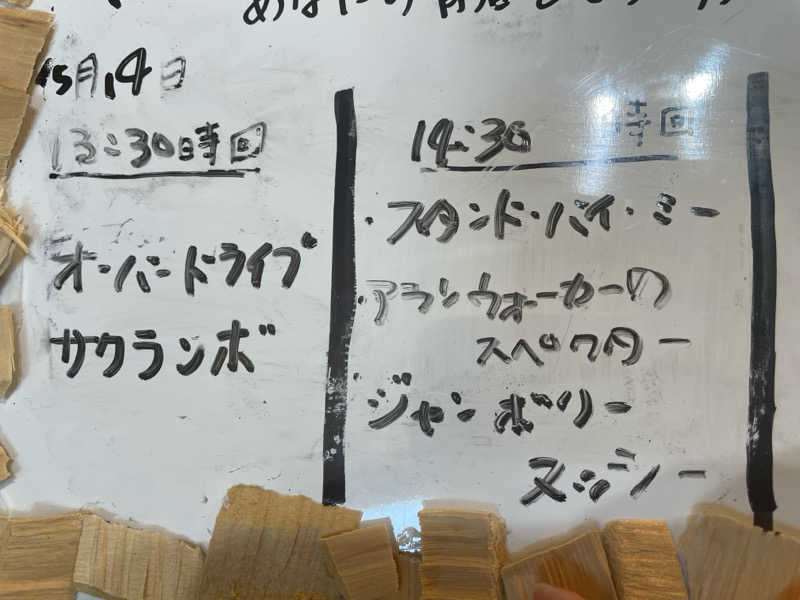 5月14日
13:30時回
オーバードライブ
サクランボ
14:30 時回
・スタンド・バイ・ミー
・アランウォーカーの
スペクター
ジャンボリー